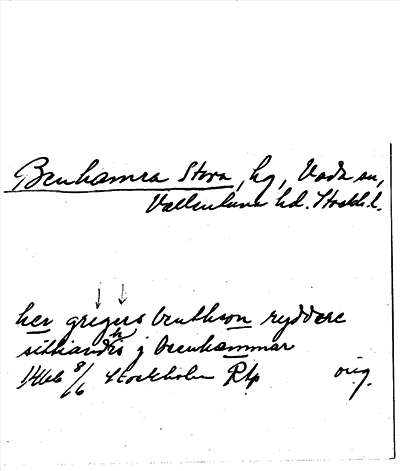 Benhamra Stora, hg, Vada sn,
Vallentuna hd. Stockh.l.
her gregers benthson ryddere
sithiandes j beenhammar
1466 8/6 Stockholm Rtp orig.